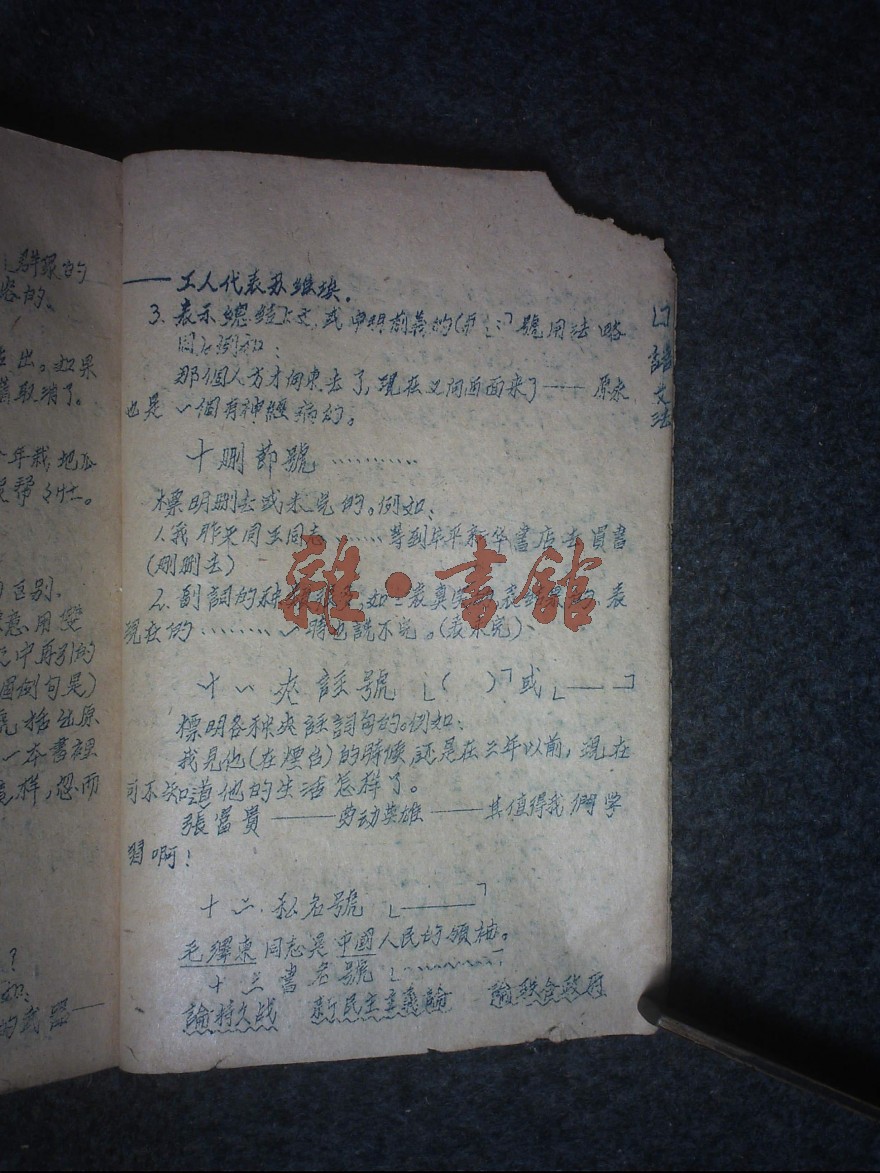 ——工人代表苏維埃.
3. 表示總結上文,或申明前義的(和「:」號用法略
同)例如:
那個人方才向東去了,現在又向西面來了——原來
也是一個有神經病的。
十 删節號 …………
標明删去或未完的。例如:
1.我昨天同王同志………等到牟平新华書店去買書
(刪去)
2.副詞的种 如:表真 表 表
現在的………一時也說不完。(表未完)
十一 夾註號「( )」或「——」
標明各种夾註詞句的。例如:
我見他(在煙台)的時候还是在三年以前,現在
可不知道他的生活怎样了。
張富貴——劳动英雄——真值得我們学
習啊!
十二.私名號「———」
毛澤東同志是中國人民的領袖。
十三 書名號「﹏﹏﹏」
論持久战 新民主主義論 論联合政府
語文法
雜·書館
群眾的
的。
出。如果
取消了。
年栽,地瓜
区别。
用變
中再引的
是)
括出原
一本書裡
样,忽而
?
如:
的武器——